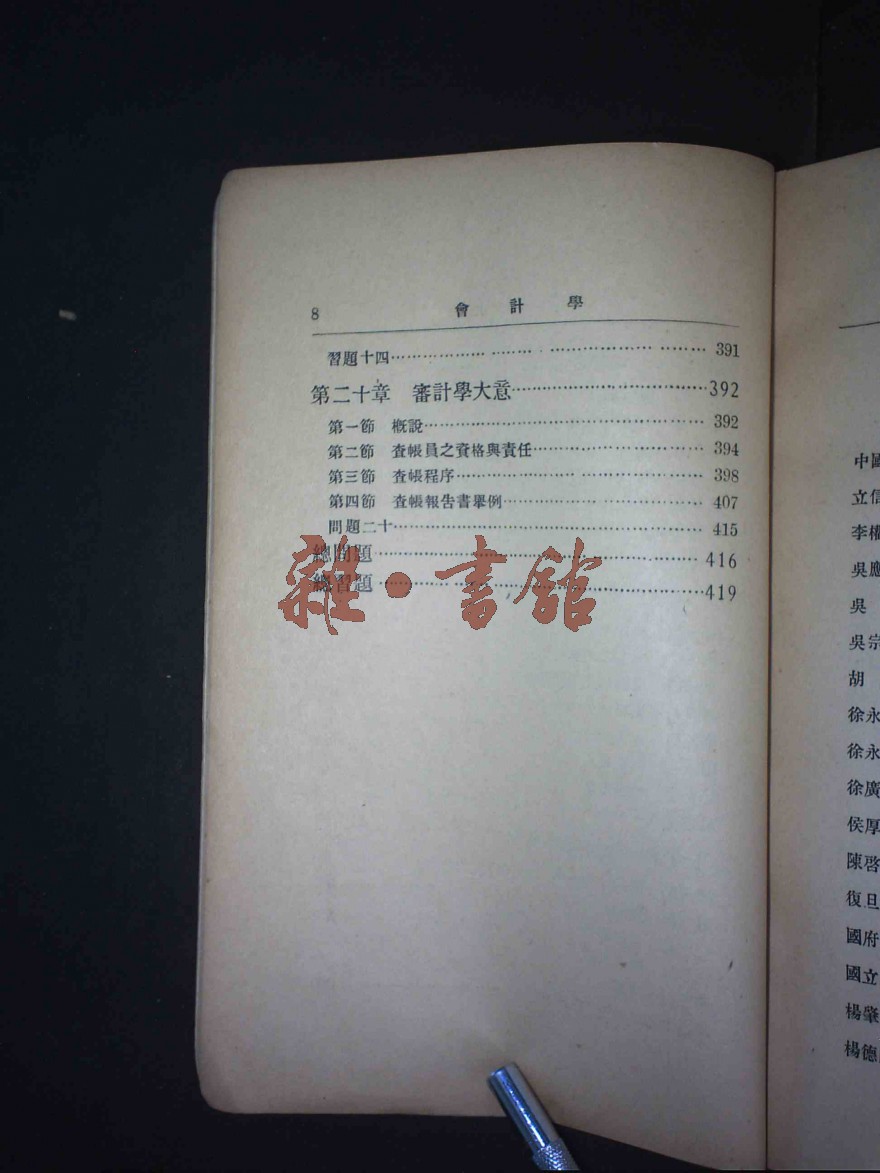 8 會計學
習題十四……………………………………391
第二十章 審計學大意……………………………392
第一節 概說……………………………………392
第二節 查帳員之資格與責任……………………394
第三節 查帳程序………………………………398
第四節 查帳報告書舉例…………………………407
問題二十………………………………………415
總問題…………………………………………416
總習題…………………………………………419
雜·書館
中國
立信
李權
吳應
吳
吳宗
胡
徐永
徐永
徐廣
侯厚
陳啓
復旦
國府
國立
楊肇
楊德